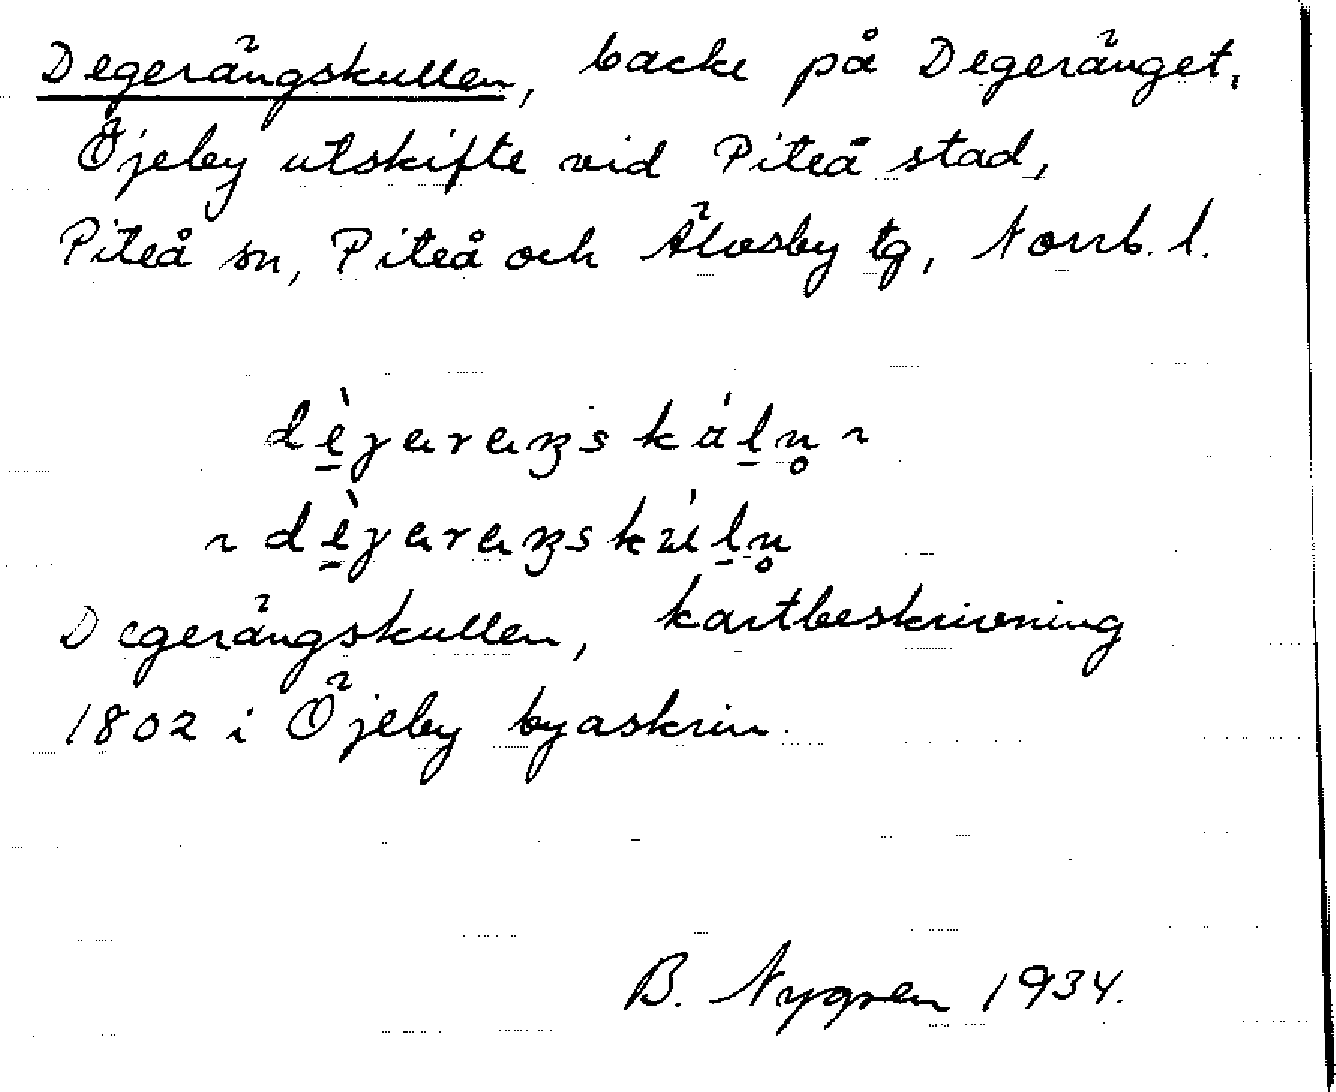 Degerängskullen, backe på Degeränget,
Öjeby utskifte vid Piteå stad,
Piteå sn, Piteå och Älvsby tg, Norrb. l.
Degerängskullen, kartbeskrivning
1802 i Öjeby byaskrin.
B. Nygren 1934.